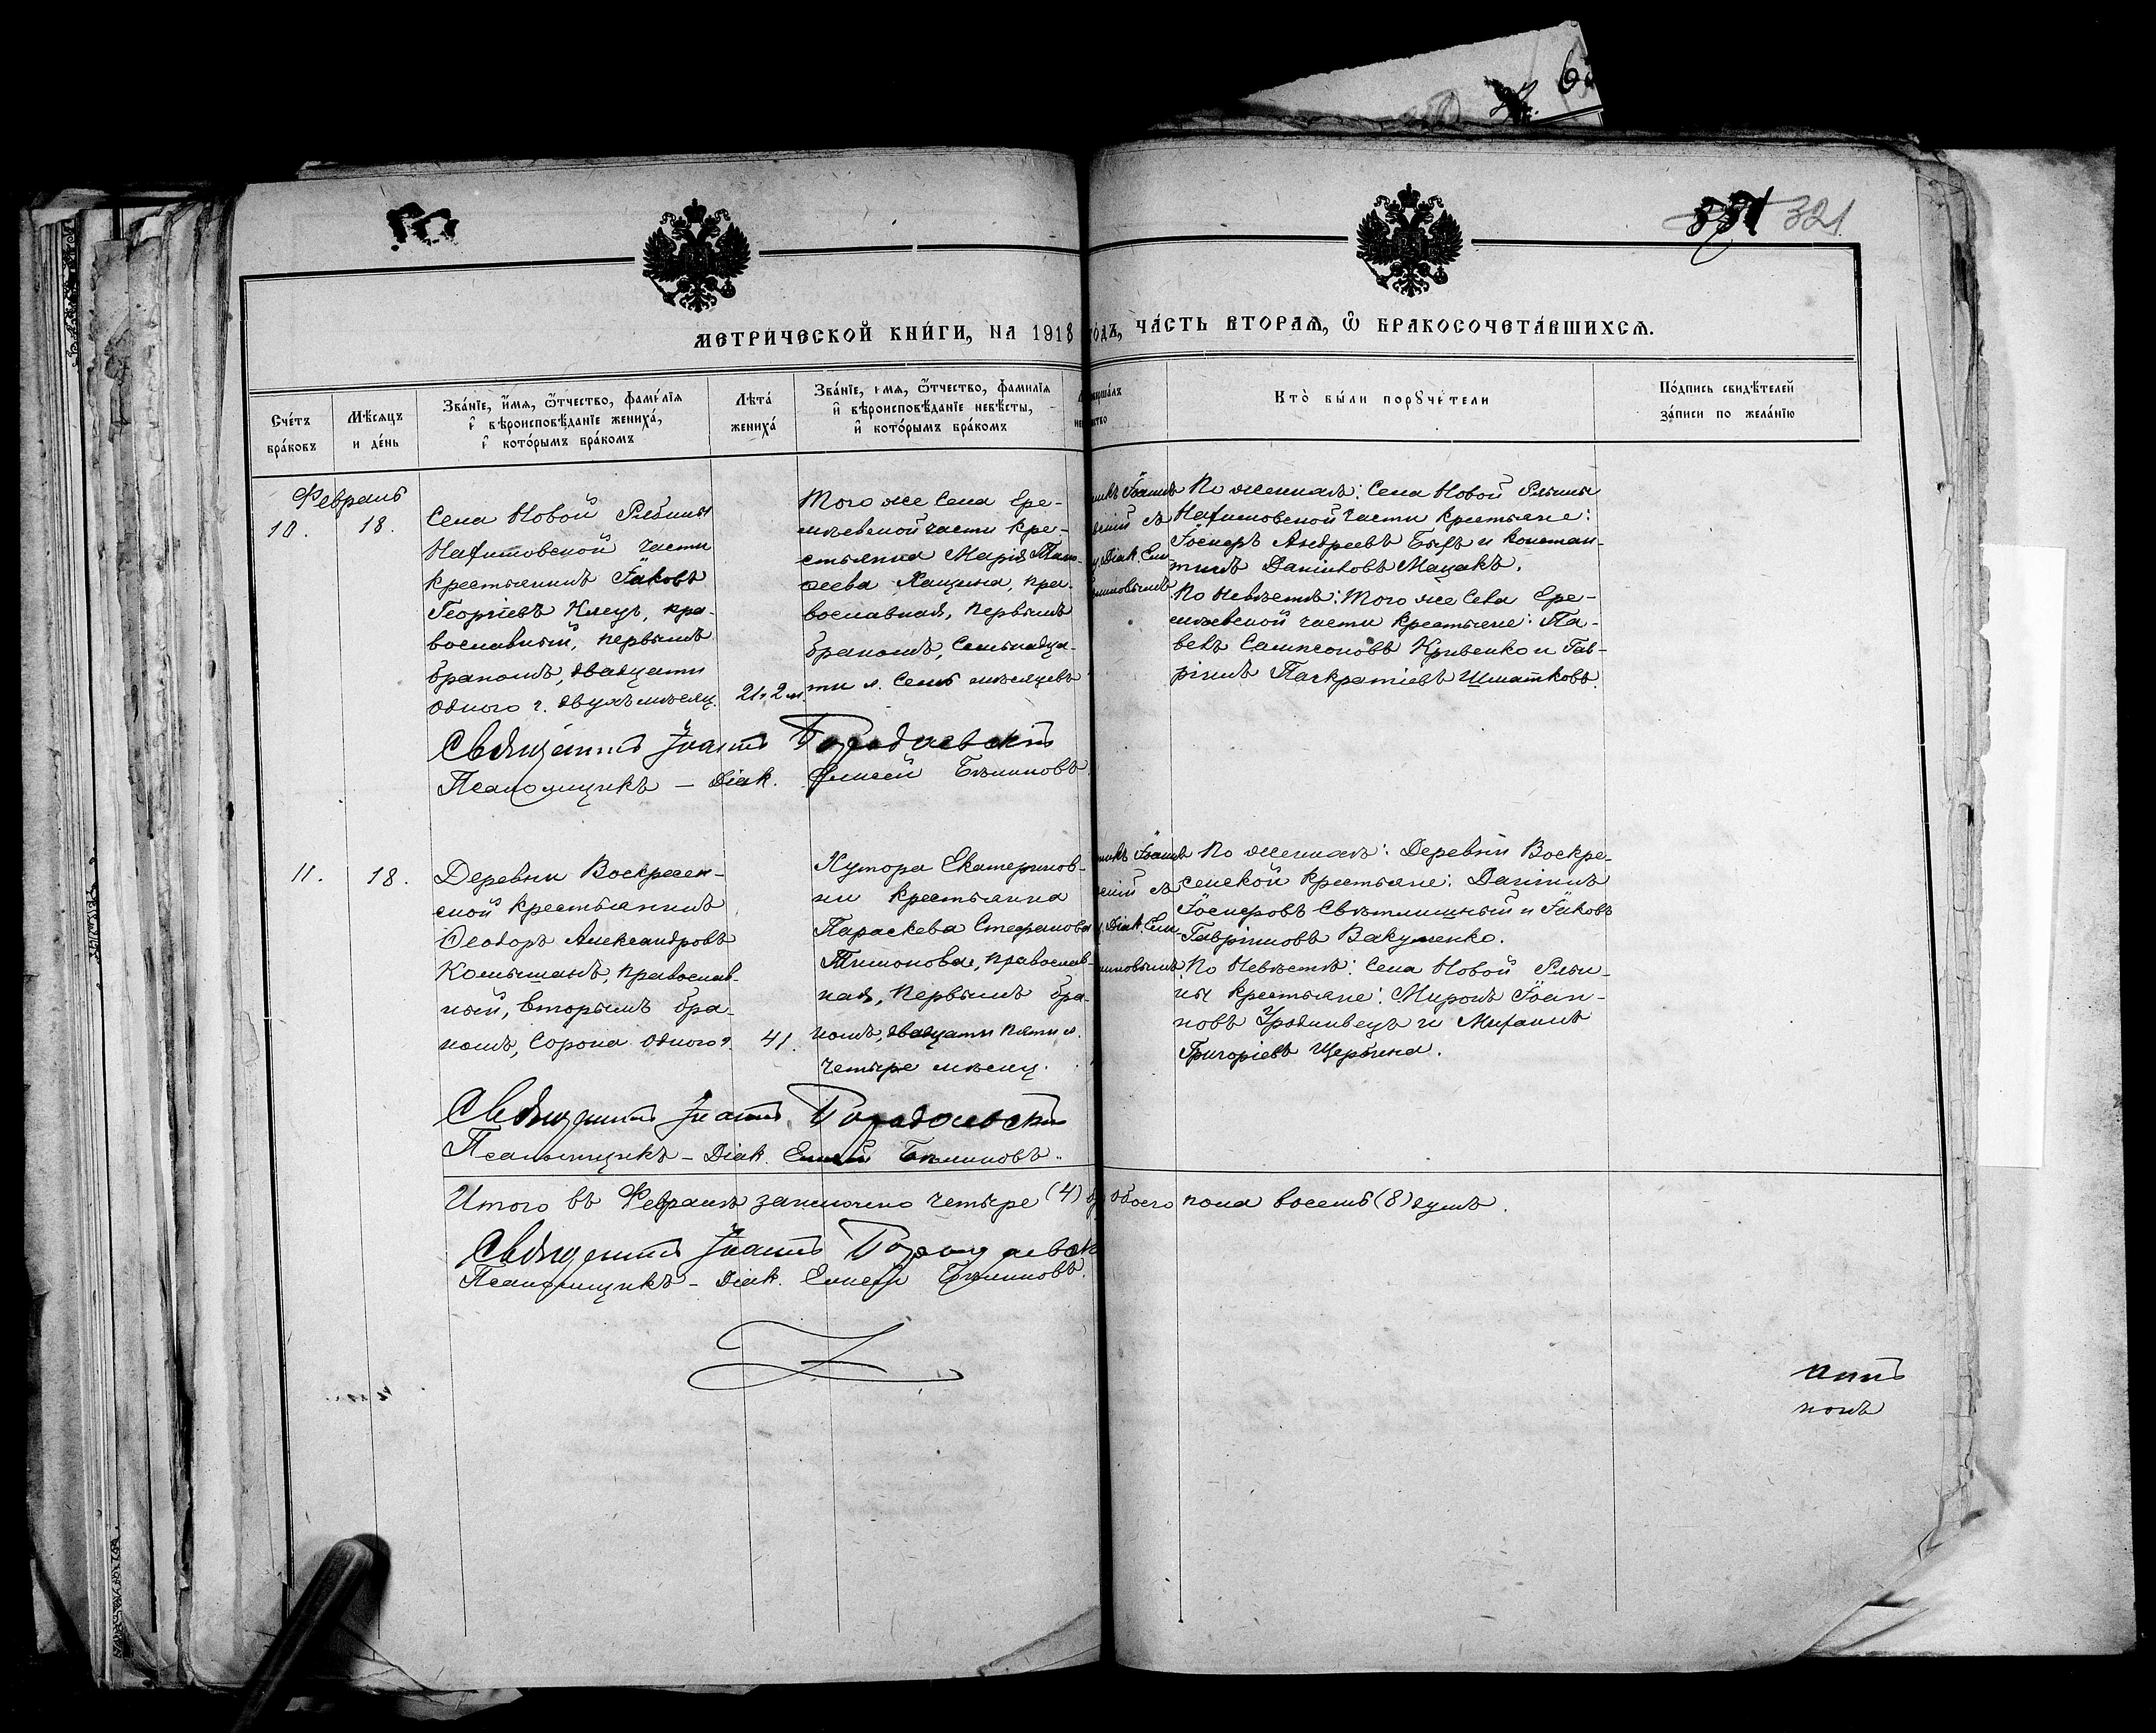 321
МЕТРИЧЕСКОЙ КНИГИ, НА 1918 ГОДЪ, ЧАСТЬ ВТОРАЯ, Ѡ БРАКОСОЧЕТАВШИХСЯ.
Счетъ браковъ
Мѣсяцъ и день
Званіе, имя, ѿчество, фамилія
и вѣроисповѣданіе жениха,
и которымъ бракомъ
Лѣта
жениха
Званіе, имя, ѿчество, фамилія
и вѣроисповѣданіе невѣсты,
и которымъ бракомъ
Кто были поручители
Подпись свидѣтелей
записи по желанію
Февраль
10. 18.
Села Новой Рябины
Нафитовской части
крестьянинъ Іаковъ
Георгіевъ Клецъ, пра-
вославный, первымъ
бракомъ, двадцати
одного г. двухъ мѣсяц.
21 г. 2 м.
Того же села Ере-
мѣевской части кре-
стьянка Марія
Хащина, пра-
вославная, первымъ
бракомъ, семьнадца-
ти л. семь мѣсяцевъ
По женихѣ: Села Новой Рябины
Нафитовской части крестьяне:
Іосифъ Андреевъ и Констан-
тинъ Даніиловъ Мацакъ.
По невѣстѣ: Того же села Ере-
мѣевской части крестьяне: Па-
велъ Сампсоновъ Кривенко и Гав-
ріилъ Панкратіевъ Шматковъ.
Священникъ Іоаннъ
Псаломщикъ – Діак. Елисей
11. 18.
Деревни Воскресен-
ской крестьянинъ
Ѳеодоръ Александровъ
Комышанъ, православ-
ный, вторымъ бра-
комъ, сорока одного г.
41.
Хутора Екатеринов-
ки крестьянка
Параскева Стефанова
Тимонова, православ-
ная, первымъ бра-
комъ, двадцати пяти л.
четыре мѣсяц.
По женихѣ: Деревни Воскре-
сенской крестьяне: Даніилъ
Іосифовъ Свѣтличный и Іаковъ
Гавріиловъ Вакуленко.
По невѣстѣ: Села Новой Ряби-
ны крестьяне: Миронъ Іоан-
новъ Уродивецъ и Михаилъ
Григоріевъ Щербина.
Священникъ Іоаннъ
Псаломщикъ – Діак. Елисей
Итого въ Февралѣ заключено четыре (4) обоего пола восемь (8) душъ.
Священникъ Іоаннъ
Псаломщикъ – Діак. Елисей